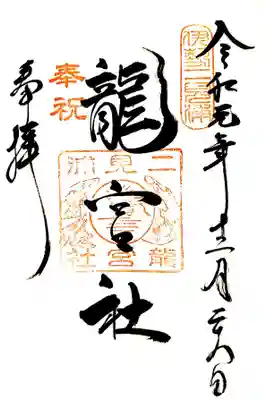 伊勢二見浦
令和元年十二月二十六日
龍宮社
奉祝
奉拝
二見浦
龍宮社